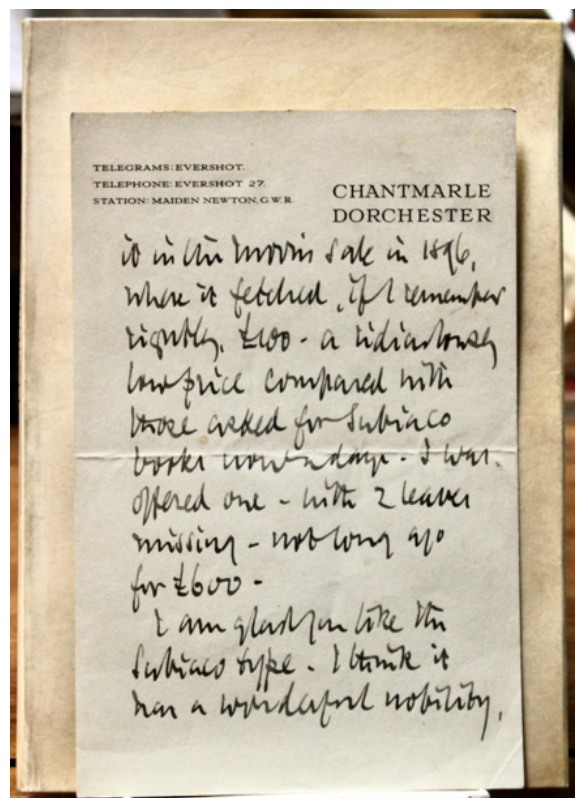 TELEGRAMS: EVERSHOT.
TELEPHONE: EVERSHOT 27.
STATION: MAIDEN NEWTON, G.W.R.
CHANTMARLE
DORCHESTER
it in the Morris Sale in 1896,
where it fetched, if I remember
rightly, £100 - a ridiculously
low price compared with
those asked for Subiaco
books nowadays. I was
offered one - with 2 leaves
missing - not long ago
for £600 -
I am glad you like the
Subiaco type. I think it
has a wonderful nobility,